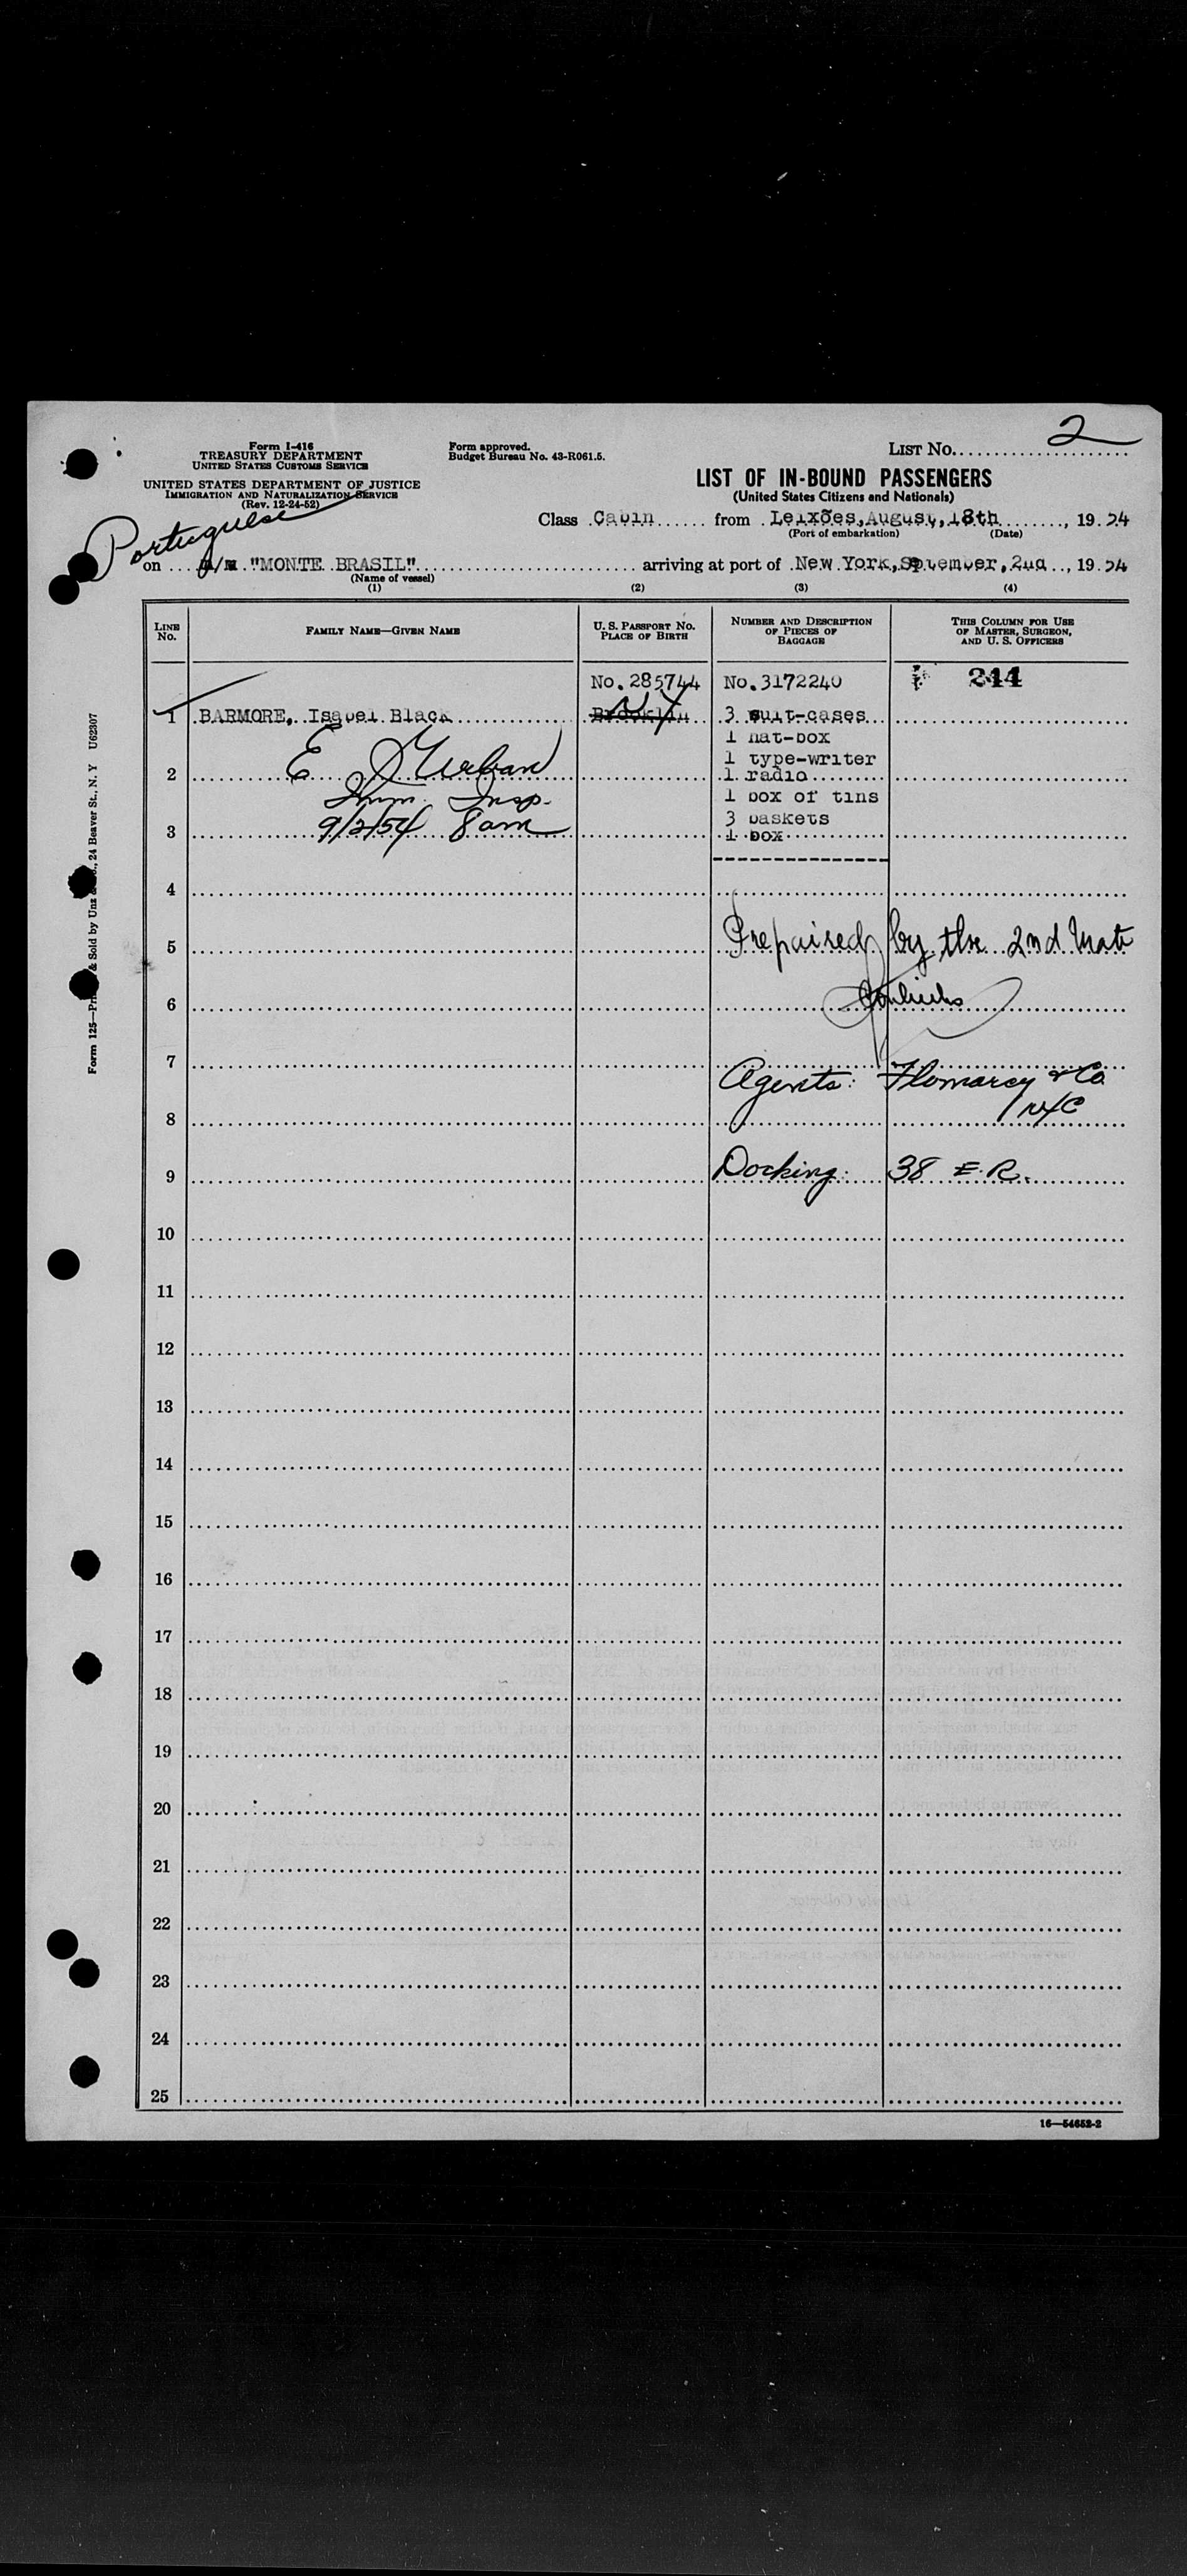 2
Form I-416
TREASURY DEPARTMENT
UNITED STATES CUSTOMS SERVICE
UNITED STATES DEPARTMENT OF JUSTICE
IMMIGRATION AND NATURALIZATION SERVICE
(Rev. 12-24-52)
Form approved.
Budget Bureau No. 43-R061.5.
LIST NO.
LIST OF IN-BOUND PASSENGERS
(United States Citizens and Nationals)
Portuguese
Class Cabin from Leixões, August, 18th, 1954
(Port of embarkation) (Date)
on "MONTE BRASIL" arriving at port of New York, September, 2nd, 1954
(Name of vessel)
(1) (2) (3) (4)
LINE NO. FAMILY NAME—GIVEN NAME U. S. PASSPORT NO. PLACE OF BIRTH NUMBER AND DESCRIPTION OF PIECES OF BAGGAGE THIS COLUMN FOR USE OF MASTER, SURGEON, AND U. S. OFFICERS
No. 285744 No. 3172240 244
1 BARMORE, Isabel Black Brooklin NY 3 suit-cases
1 hat-box
1 type-writer
2 E J Urban 1 radio
Imm. Insp. 1 box of tins
3 baskets
3 9/2/54 8 am 1 box
4
5 Prepaired by the 2nd Mate
6
7
Agents: & Co
8 NYC
9 Docking: 38 E. R.
10
11
12
13
14
15
16
17
18
19
20
21
22
23
24
25
16—54652-2
24 Beaver St., N. Y U62307
Form 125— & Sold by Unz